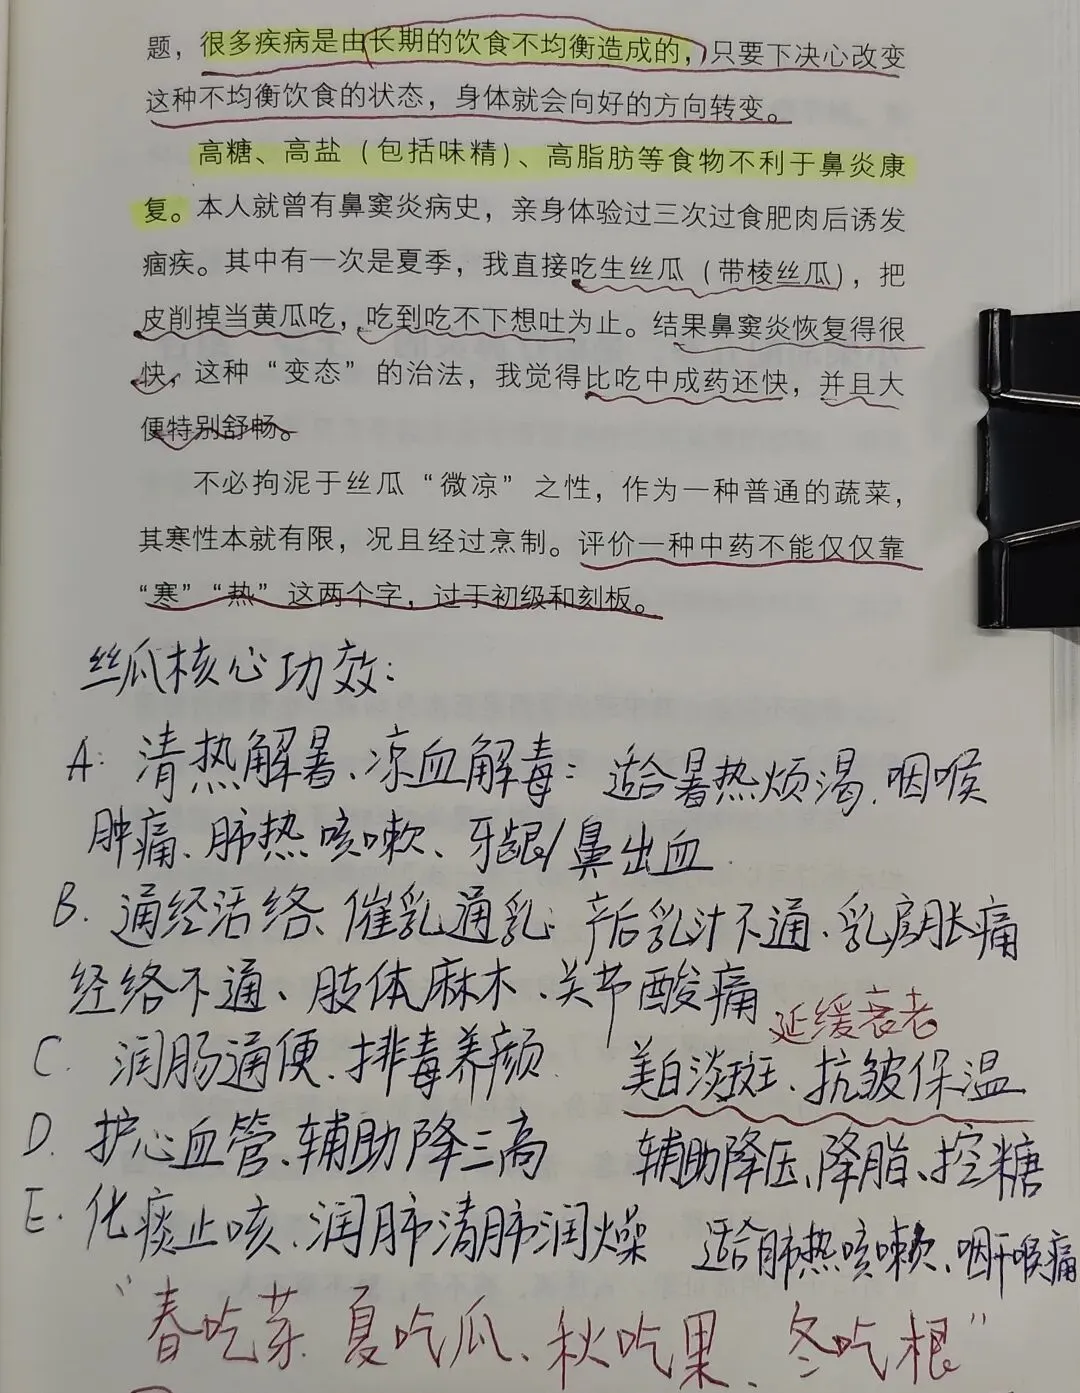 题，很多疾病是由长期的饮食不均衡造成的，只要下决心改变
这种不均衡饮食的状态，身体就会向好的方向转变。
高糖、高盐（包括味精）、高脂肪等食物不利于鼻炎康
复。本人就曾有鼻窦炎病史，亲身体验过三次过食肥肉后诱发
痼疾。其中有一次是夏季，我直接吃生丝瓜（带棱丝瓜），把
皮削掉当黄瓜吃，吃到吃不下想吐为止。结果鼻窦炎恢复得很
快，这种“变态”的治法，我觉得比吃中成药还快，并且大
便特别舒畅。
不必拘泥于丝瓜“微凉”之性，作为一种普通的蔬菜，
其寒性本就有限，况且经过烹制。评价一种中药不能仅仅靠
“寒”“热”这两个字，过于初级和刻板。
丝瓜核心功效：
A：清热解暑、凉血解毒：适合暑热烦渴、咽喉
肿痛、肺热咳嗽、牙龈/鼻出血
B. 通经活络、催乳通乳：产后乳汁不通、乳房胀痛
经络不通、肢体麻木、关节酸痛
延缓衰老
C. 润肠通便、排毒养颜 美白淡斑、抗皱保温
D. 护心血管、辅助降三高 辅助降压、降脂、控糖
E. 化痰止咳、润肺清肺润燥 适合肺热咳嗽、咽干喉痛
“春吃芽、夏吃瓜、秋吃果、冬吃根”